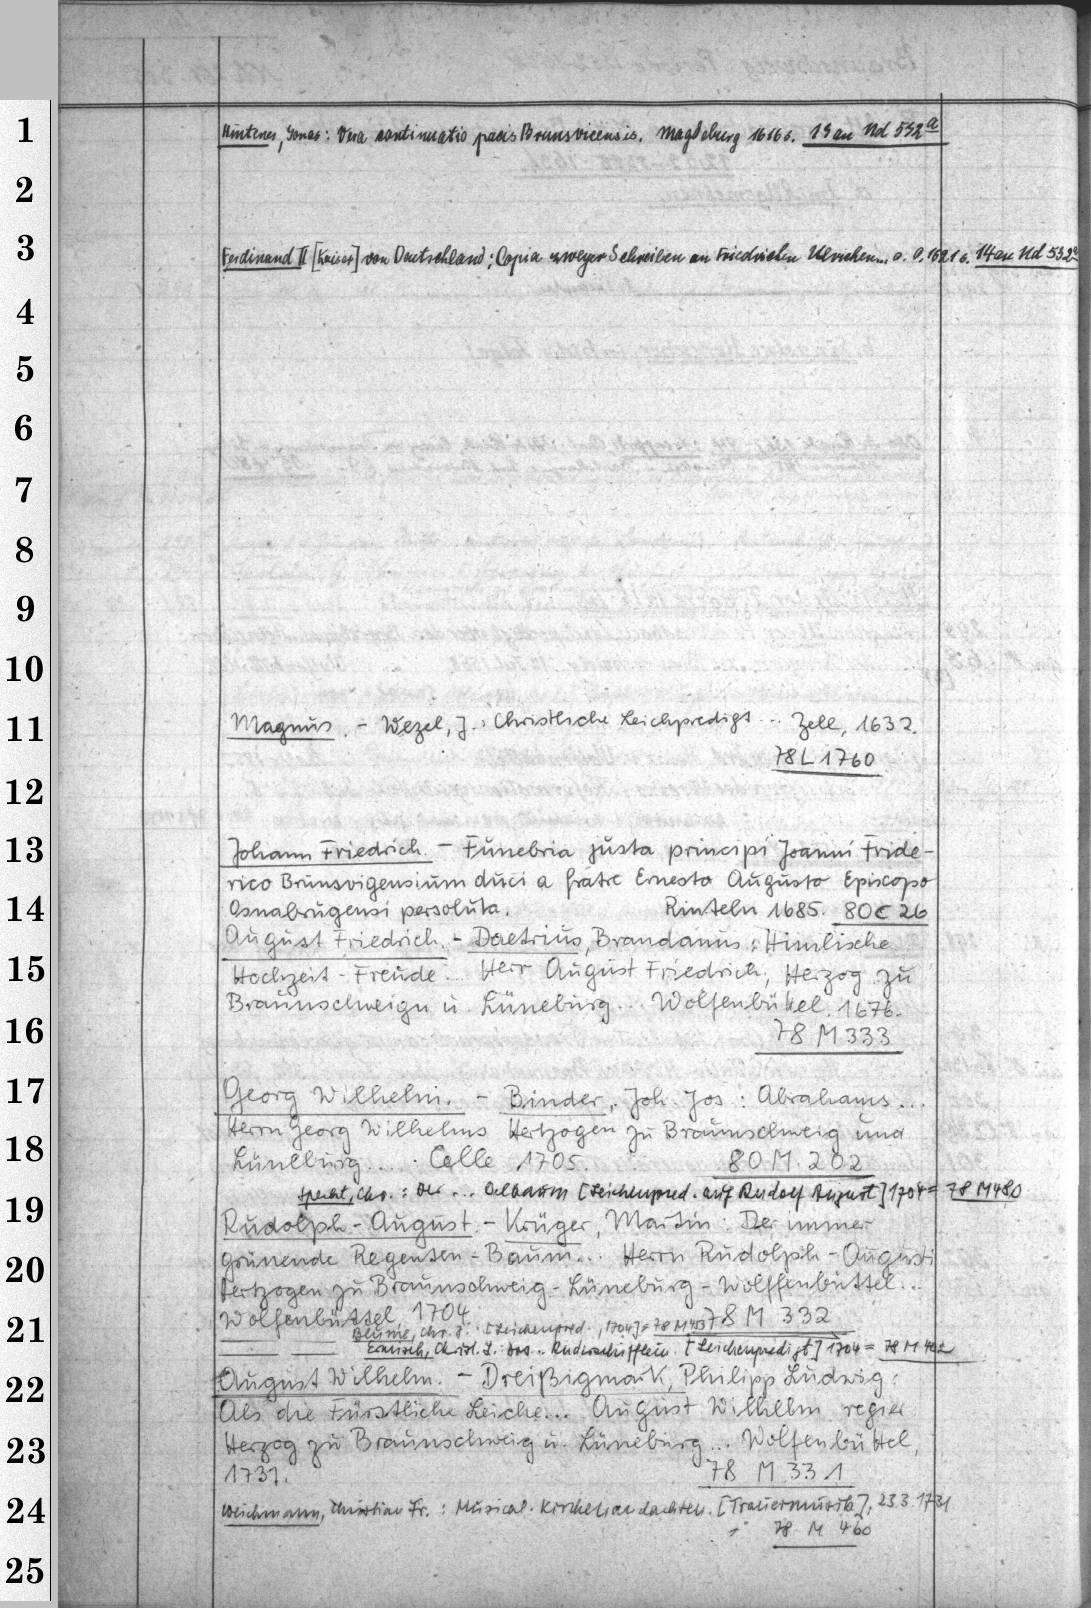 1
Hintzes, Jonas: Vera continuatio pacis Brunsvicensis. Magdeburg 1616 6. 13 an Nd 532a
2
3
Ferdinand II [Kaiser] von Deutschland: Copia zweyer Schreiben an Friedrichen Ulrichen... o. O. 1621 6. 14 an Nd 532a
4
5
6
7
8
9
10
11
Magnus. - Wezel, J.: Christliche Leichpredigt ... Zelle, 1632.
78 L 1760
12
13
Johann Friedrich. - Funebria justa principi Joanni Fride-
rico Brunsvigensium duci a fratre Ernesto Augusto Episcopo
14
Osnabrugensi persoluta. Rinteln 1685. 80 C 26
August Friedrich. - Daetrius, Brandanus: Himlische
15
Hochzeit-Freude... Herr August Friedrich, Herzog zu
Braunschweign u. Lüneburg... Wolfenbüttel. 1676.
16
78 M 333
17
Georg Wilhelm. - Binder, Joh. Jos: Abrahams...
Herrn Georg Wilhelms Hertzogen zu Braunschweig und
18
Lüneburg... Celle 1705. 80 M 202
Specht, Chr.: Der ... Oelbaum [Leichenpred. auf Rudolf August] 1704 = 78 M 480
19
Rudolph-August. - Krüger, Martin: Der immer
grünende Regenten-Baum... Herrn Rudolph-Augusti
20
Hertzogen zu Braunschweig-Lüneburg-Wolffenbüttel...
Wolfenbüttel, 1704. 78 M 332
21
Blume, Chr. J. [Leichenpred., 1704] = 78 M
Christ. L.: Das... Ruderschifflein. [Leichenpredigt] 1704 = 78 M 402
22
August Wilhelm. - Dreißigmark, Philipp Ludwig:
Als die Fürstliche Leiche... August Wilhelm regier
23
Herzog zu Braunschweig u. Lüneburg... Wolfenbüttel,
1731. 78 M 331
24
Weichmann, Christian Fr.: Musical. Kirchenandachten. [Trauermusik], 23.3.1731
78 M 460
25